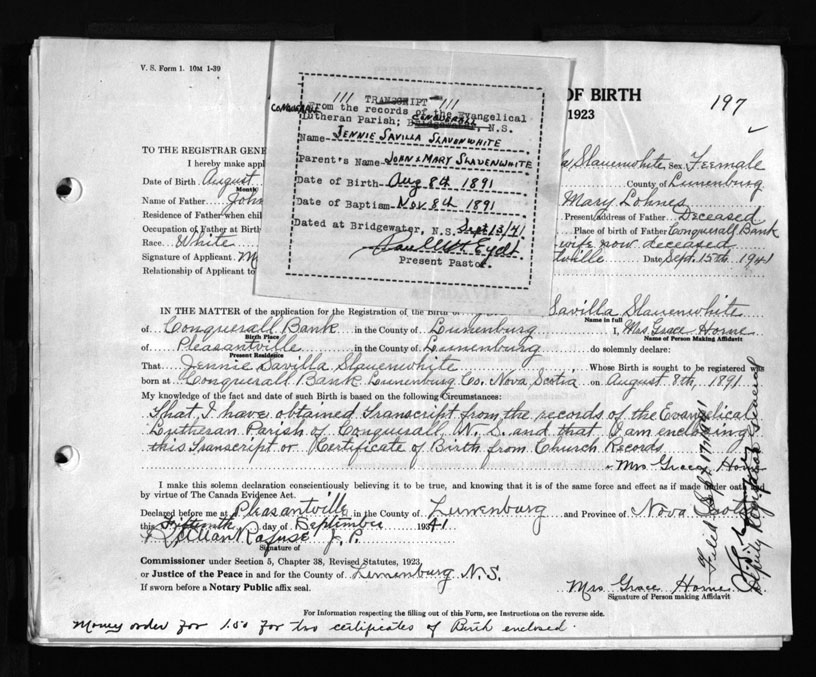 V. S. Form 1. 10M 1-39
OF BIRTH
1923
197
TRANSCRIPT
From the records of the Evangelical
CONQUERALL
Lutheran Parish; Bridgewater, N.S.
CONQUERALL
Name- JENNIE SAVILLA SLAVONWHITE
Parent's Name- JOHN & MARY SLAUENWHITE
Date of Birth- Aug 8th 1891
Date of Baptism- Nov. 8th 1891
Dated at Bridgewater, N.S. Sept 13/41
Present Pastor.
TO THE REGISTRAR GENE
I hereby make appl
Slauenwhite, Sex. Feemale
Date of Birth August
Month
County of Lunenburg
Name of Father John
Mary Lohnes
Residence of Father when chil
Present address of Father Deceased
Occupation of Father at Birth
Place of birth of Father Conquerall Bank
Race. White
wife now deceased
Signature of Applicant M
tville Date Sept. 15th 1941
Relationship of Applicant to
IN THE MATTER of the application for the Registration of the Birth of Savilla Slauenwhite
Name in full
of Conquerall Bank in the County of Lunenburg I, Mrs. Grace Horne
Birth Place
Name of Person Making Affidavit
of Pleasantville in the County of Lunenburg do solemnly declare:
Present Residence
That Jennie Savilla Slauenwhite Whose Birth is sought to be registered was
born at Conquerall Bank Lunenburg Co. Nova Scotia on August 8th, 1891
My knowledge of the fact and date of such Birth is based on the following Circumstances:
That I have obtained Transcript from the records of the Evangelical
Lutheran Parish of Conquerall N.S. and that I am enclosing
this Transcript or Certificate of Birth from Church Records
Mrs Grace Horne
I make this solemn declaration conscientiously believing it to be true, and knowing that it is of the same force and effect as if made under oath
by virtue of The Canada Evidence Act.
Declared before me at Pleasantville in the County of Lunenburg and Province of Nova Scotia
this fifteenth day of September 1941
Rafuse J. P.
Signature of
Commissioner under Section 5, Chapter 38, Revised Statutes, 1923,
or Justice of the Peace in and for the County of Lunenburg N.S.
If sworn before a Notary Public affix seal.
Mrs Grace Horne
Signature of Person making Affidavit
For Information respecting the filling out of this Form, see Instructions on the reverse side.
Money order for 1.50 for two certificates of Birth enclosed.
Filed Sept 17/1941
Deputy Registrar General